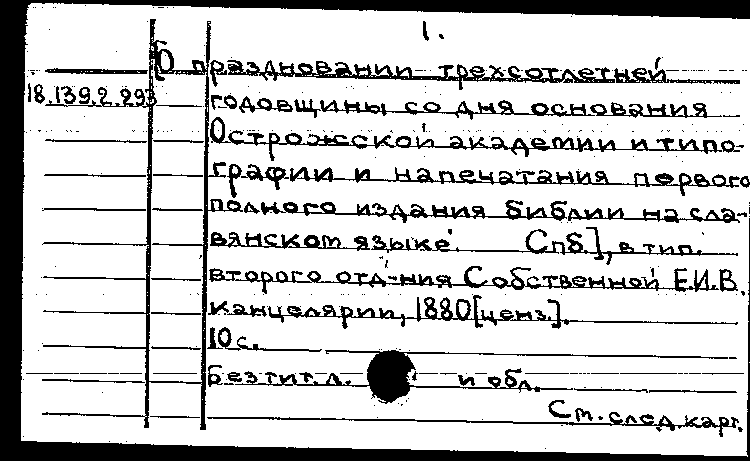 1.
[О праздновании трехсотлетней
18.139.2.293 годовщины со дня основания
Острожской академии и типо-
графии и напечатания первого
полного издания библии на сла-
вянском языке. Спб.], в тип.
второго отд-ния Собственной Е.И.В.
канцелярии, 1880 [ценз.].
10 с.
Без тит. л. и обл.
См. след. карт.